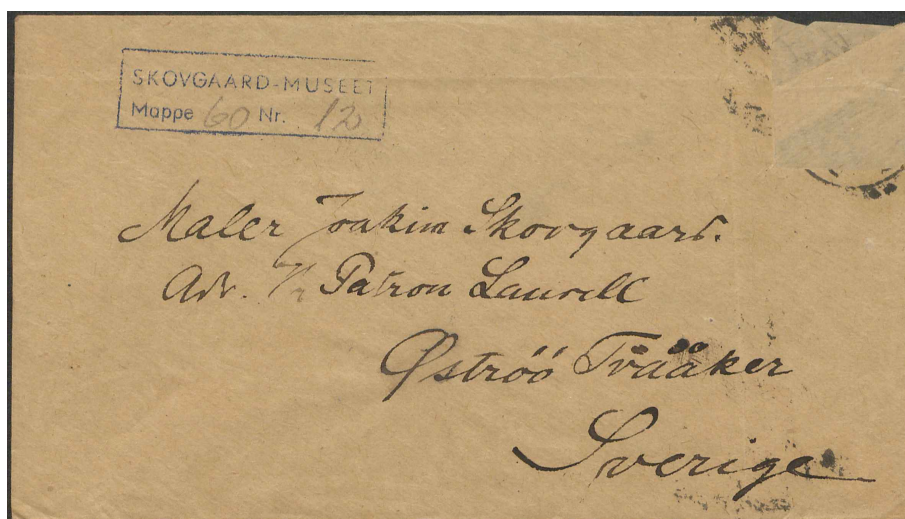 SKOVGAARD-MUSEET
Mappe 60 Nr. 12
Maler Joakim Skovgaard.
Adr. Hr Patron Laurell
Øströö Tvååker
Sverige